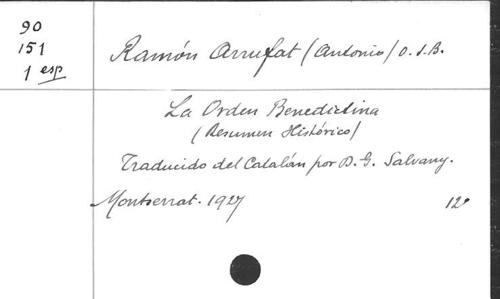 90
151
1 esp
Ramón Arrufat (Antonio) O.S.B.
La Orden Benedictina
(Resumen Histórico)
Traducido del Catalán por D. G. Salvany.
Montserrat. 1927 12º